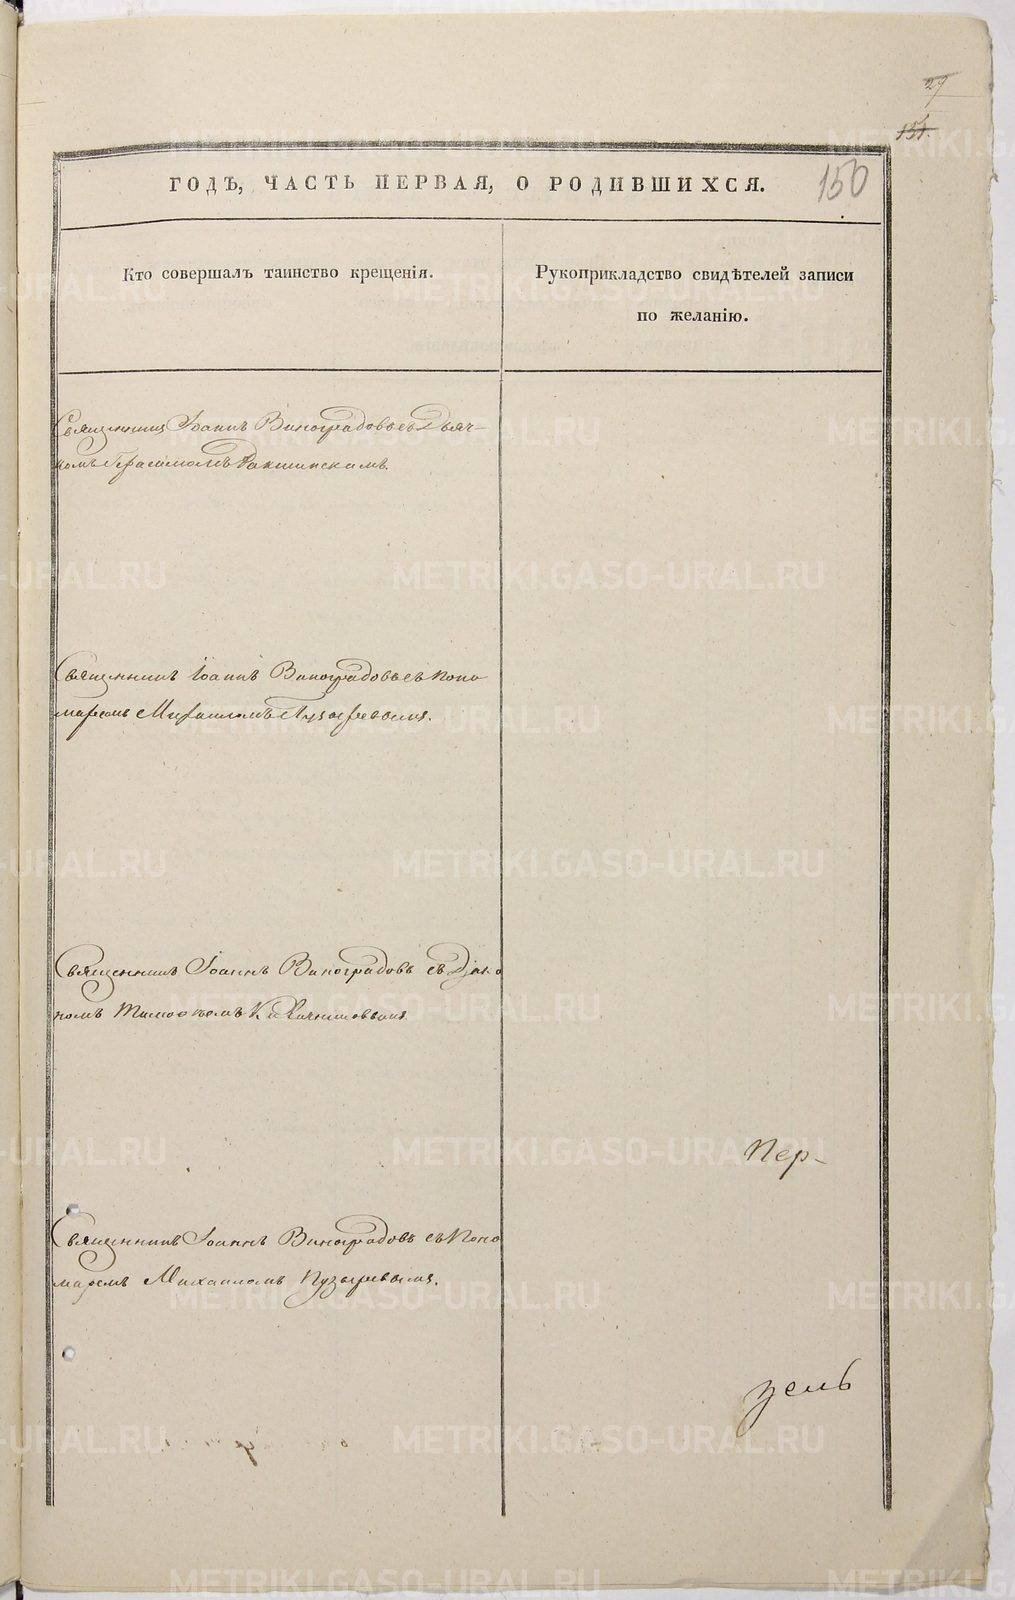 27
151.
150
ГОДЪ, ЧАСТЬ ПЕРВАЯ, О РОДИВШИХСЯ.
Кто совершалъ таинство крещенія.
Рукоприкладство свидѣтелей записи
по желанію.
Священникъ Іоаннъ Виноградовъ съ Дьяч-
комъ Герасимомъ
Священникъ Іоаннъ Виноградовъ съ Поно
маремъ Михаиломъ Пузыревымъ.
Священникъ Іоаннъ Виноградовъ съ Діако
номъ
Пер-
Священникъ Іоаннъ Виноградовъ съ Поно
маремъ Михаиломъ Пузыревымъ.
METRIKI.GASO-URAL.RU